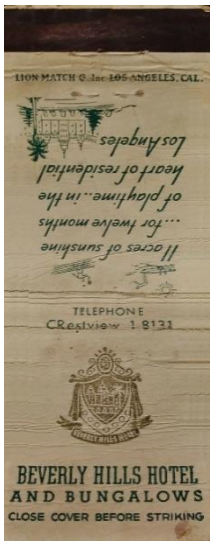 LION MATCH CO. Inc. LOS ANGELES, CAL.
11 acres of sunshine
...for twelve months
of playtime..in the
heart of residential
Los Angeles
TELEPHONE
CRestview 1 8131
BEVERLY HILLS HOTEL
BEVERLY HILLS HOTEL
AND BUNGALOWS
CLOSE COVER BEFORE STRIKING